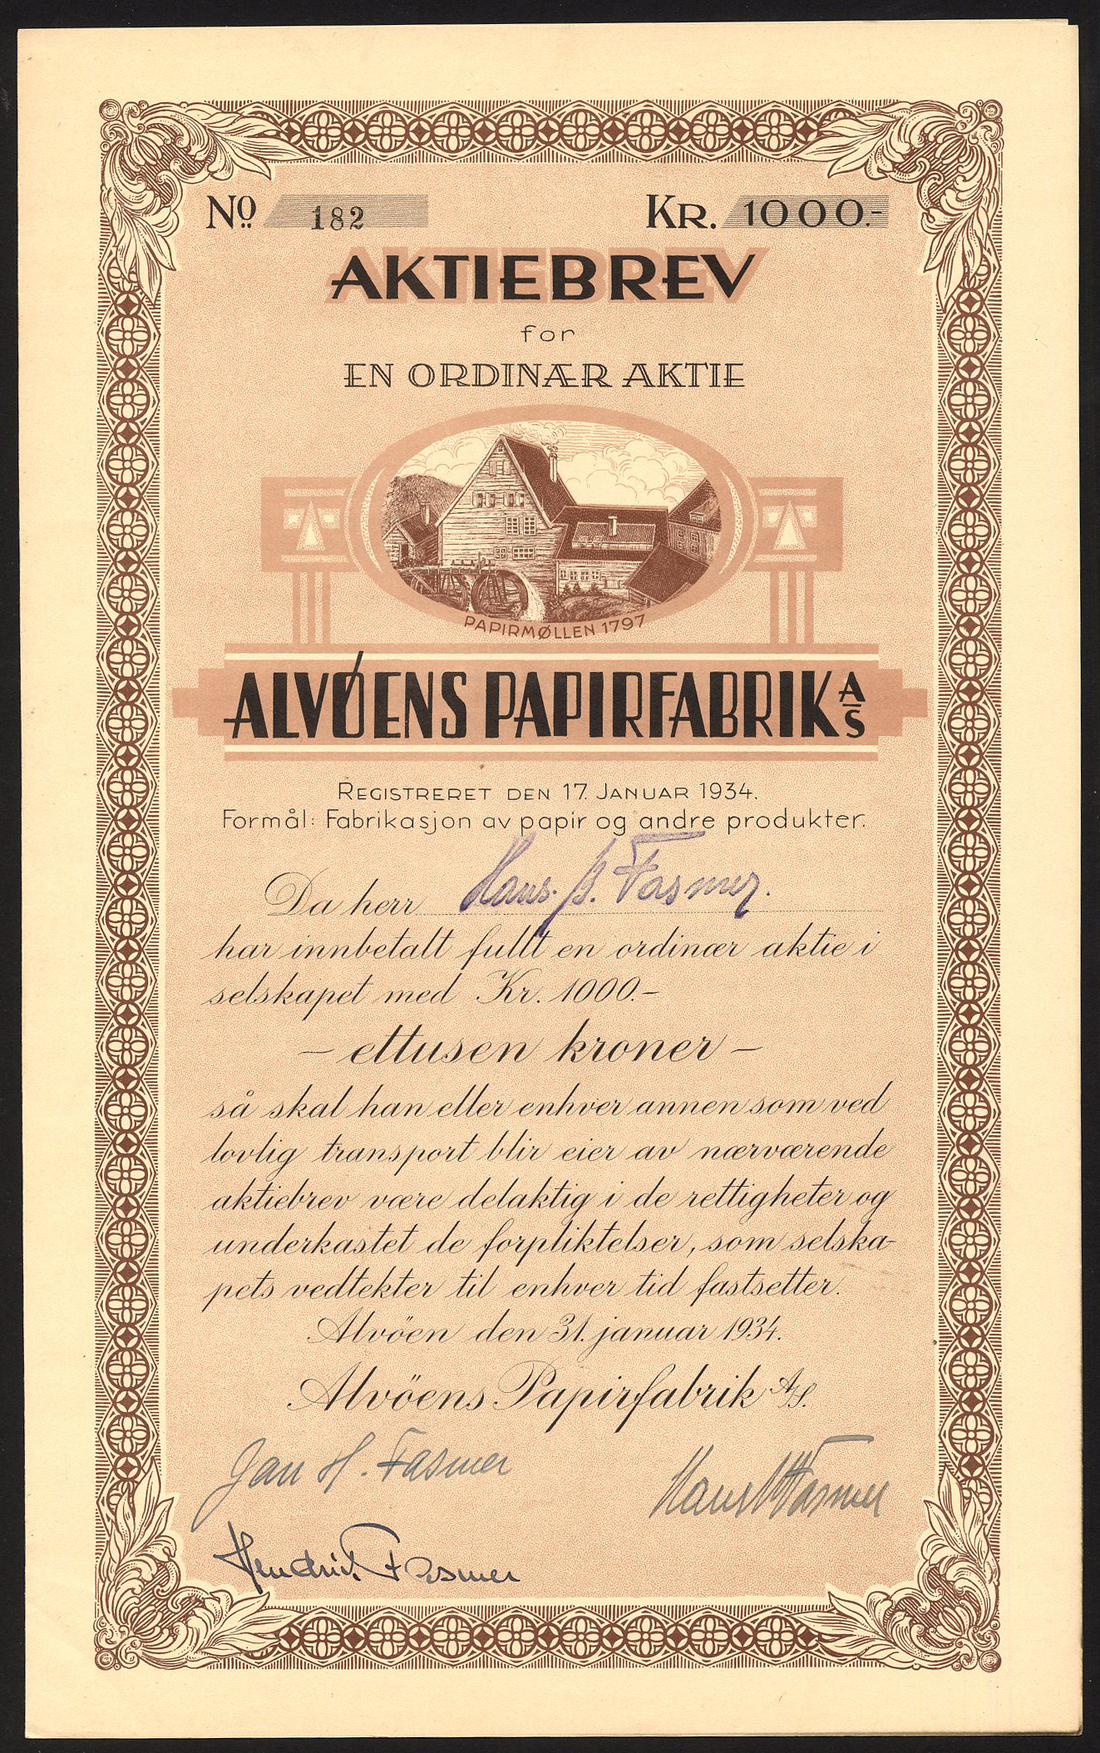 Nº 182 Kr. 1000.-
AKTIEBREV
for
EN ORDINÆR AKTIE
PAPIRMØLLEN 1797
ALVØENS PAPIRFABRIK A/S
REGISTRERET DEN 17. JANUAR 1934.
Formål: Fabrikasjon av papir og andre produkter.
Da herr Hans. B. Fasmer.
har innbetalt fullt en ordinær aktie i
selskapet med Kr. 1000.-
- ettusen kroner -
så skal han eller enhver annen som ved
lovlig transport blir eier av nærværende
aktiebrev være delaktig i de rettigheter og
underkastet de forpliktelser, som selska-
pets vedtekter til enhver tid fastsetter.
Alvöen den 31. januar 1934.
Alvöens Papirfabrik A/S.
Jan H. Fasmer
Fasmer
Hendrik Fasmer